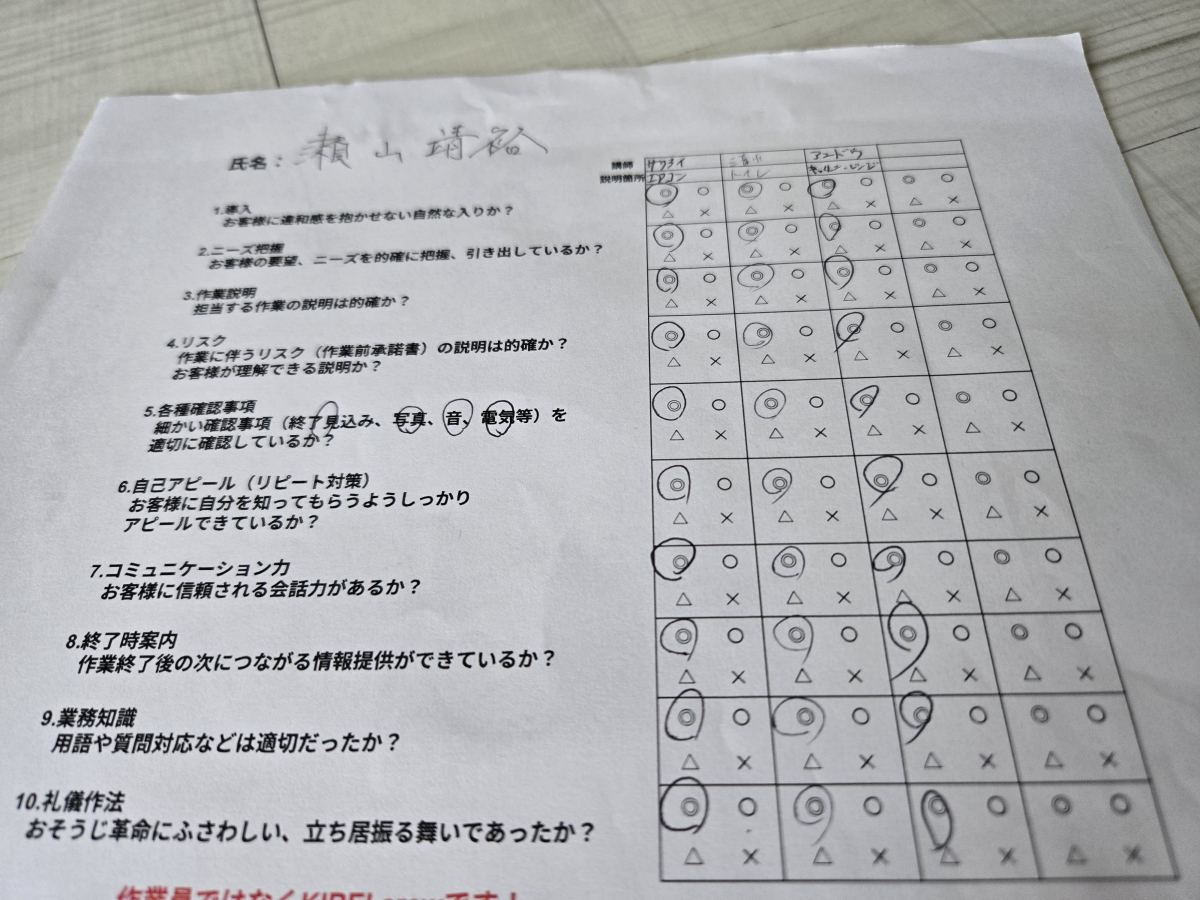 氏名： 瀬山 靖裕
講師 サクライ アンドウ
説明箇所 エアコン トイレ キッチン・レンジ
1.導入
お客様に違和感を抱かせない自然な入りか？
◎ ○ ◎ ○ ◎ ○ ◎ ○
△ × △ × △ × △ ×
2.ニーズ把握
お客様の要望、ニーズを的確に把握、引き出しているか？
◎ ○ ◎ ○ ◎ ○ ◎ ○
△ × △ × △ × △ ×
3.作業説明
担当する作業の説明は的確か？
◎ ○ ◎ ○ ◎ ○ ◎ ○
△ × △ × △ × △ ×
4.リスク
作業に伴うリスク（作業前承諾書）の説明は的確か？
お客様が理解できる説明か？
◎ ○ ◎ ○ ◎ ○ ◎ ○
△ × △ × △ × △ ×
5.各種確認事項
細かい確認事項（終了見込み、写真、音、電気等）を
適切に確認しているか？
◎ ○ ◎ ○ ◎ ○ ◎ ○
△ × △ × △ × △ ×
6.自己アピール（リピート対策）
お客様に自分を知ってもらうようしっかり
アピールできているか？
◎ ○ ◎ ○ ◎ ○ ◎ ○
△ × △ × △ × △ ×
7.コミュニケーション力
お客様に信頼される会話力があるか？
◎ ○ ◎ ○ ◎ ○ ◎ ○
△ × △ × △ × △ ×
8.終了時案内
作業終了後の次につながる情報提供ができているか？
◎ ○ ◎ ○ ◎ ○ ◎ ○
△ × △ × △ × △ ×
9.業務知識
用語や質問対応などは適切だったか？
◎ ○ ◎ ○ ◎ ○ ◎ ○
△ × △ × △ × △ ×
10.礼儀作法
おそうじ革命にふさわしい、立ち居振る舞いであったか？
◎ ○ ◎ ○ ◎ ○ ◎ ○
△ × △ × △ × △ ×
作業員ではなくKIREI crewです！